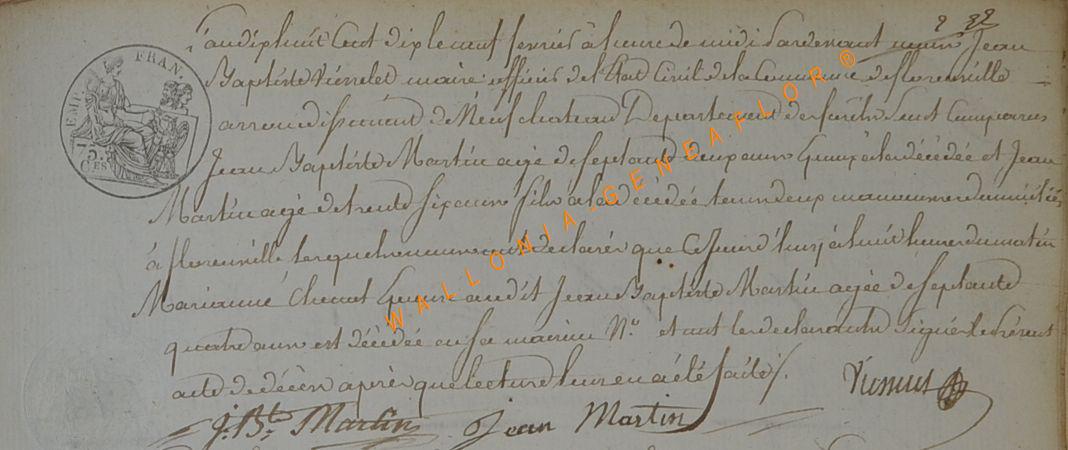 l'an dix huit Cent dix le neuf fevrier à l'heure de midi Pardevant nous Jean
Baptiste maire officier de l'Etat Civil de la Commune de florenville
arrondissement de Neufchateau Departement des forêts Sont Comparus
Jean Baptiste Martin agé de septante deux ans Epoux à la décédée et Jean
Martin agé de trente six ans fils à la décédée tous deux manoeuvres domiciliés
à florenville lesquels nous ont declarés que Cejourd'huy à huit heures du matin
Marianne Epouse audit Jean Baptiste Martin agée de septante
quatre ans est décédée en sa maison N° et ont les declarants signé le présent
acte de décès après que lecture leur en a été faite /.
J. Bte Martin Jean Martin
EMP. FRAN.
5. CES
WALLONIA-GENEAFLOR®